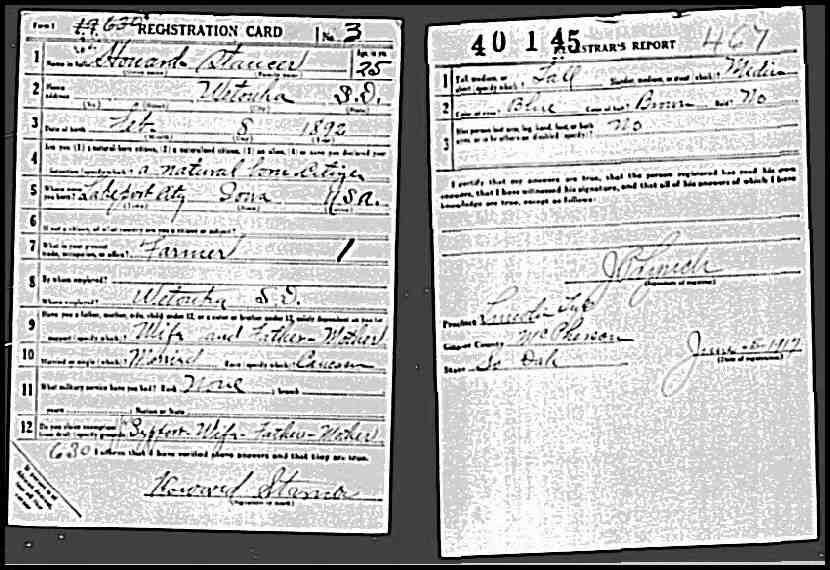 Form 1 630 REGISTRATION CARD No. 3
1 Howard Age, in yrs.
Name in full (Given name) (Family name) 25
2 Home address Wetonka S.D.
(No.) (Street) (City) (State)
3 Date of birth Feb. 8 1892
(Month) (Day) (Year)
4 Are you (1) a natural-born citizen, (2) a naturalized citizen, (3) an alien, (4) or have you declared your
intention (specify which)? a natural born Citizen
5 Where were you born? City Iowa U.S.A.
(Town) (State) (Nation)
6 If not a citizen, of what country are you a citizen or subject?
7 What is your present trade, occupation, or office? Farmer 1
8 By whom employed?
Where employed? Wetonka S.D.
9 Have you a father, mother, wife, child under 12, or a sister or brother under 12, solely dependent on you for
support (specify which)? Wife and Father-Mother
10 Married or single (which)? Married Race (specify which)?
11 What military service have you had? Rank None ; branch
years ; Nation or State
12 Do you claim exemption from draft (specify grounds)? Support-Wife-Father-Mother
630 I affirm that I have verified above answers and that they are true.
Howard
(Signature or mark)
40 1 45 REGISTRAR'S REPORT 467
1 Tall, medium, or short (specify which)? Tall Slender, medium, or stout (which)?
2 Color of eyes? Blue Color of hair? Brown Bald? No
3 Has person lost arm, leg, hand, foot, or both
eyes, or is he otherwise disabled (specify)? No
I certify that my answers are true, that the person registered has read his own
answers, that I have witnessed his signature, and that all of his answers of which I have
knowledge are true, except as follows:
(Signature of registrar)
Precinct Lincoln Twp
County McPherson
State So Dak June 5-1917
(Date of registration)